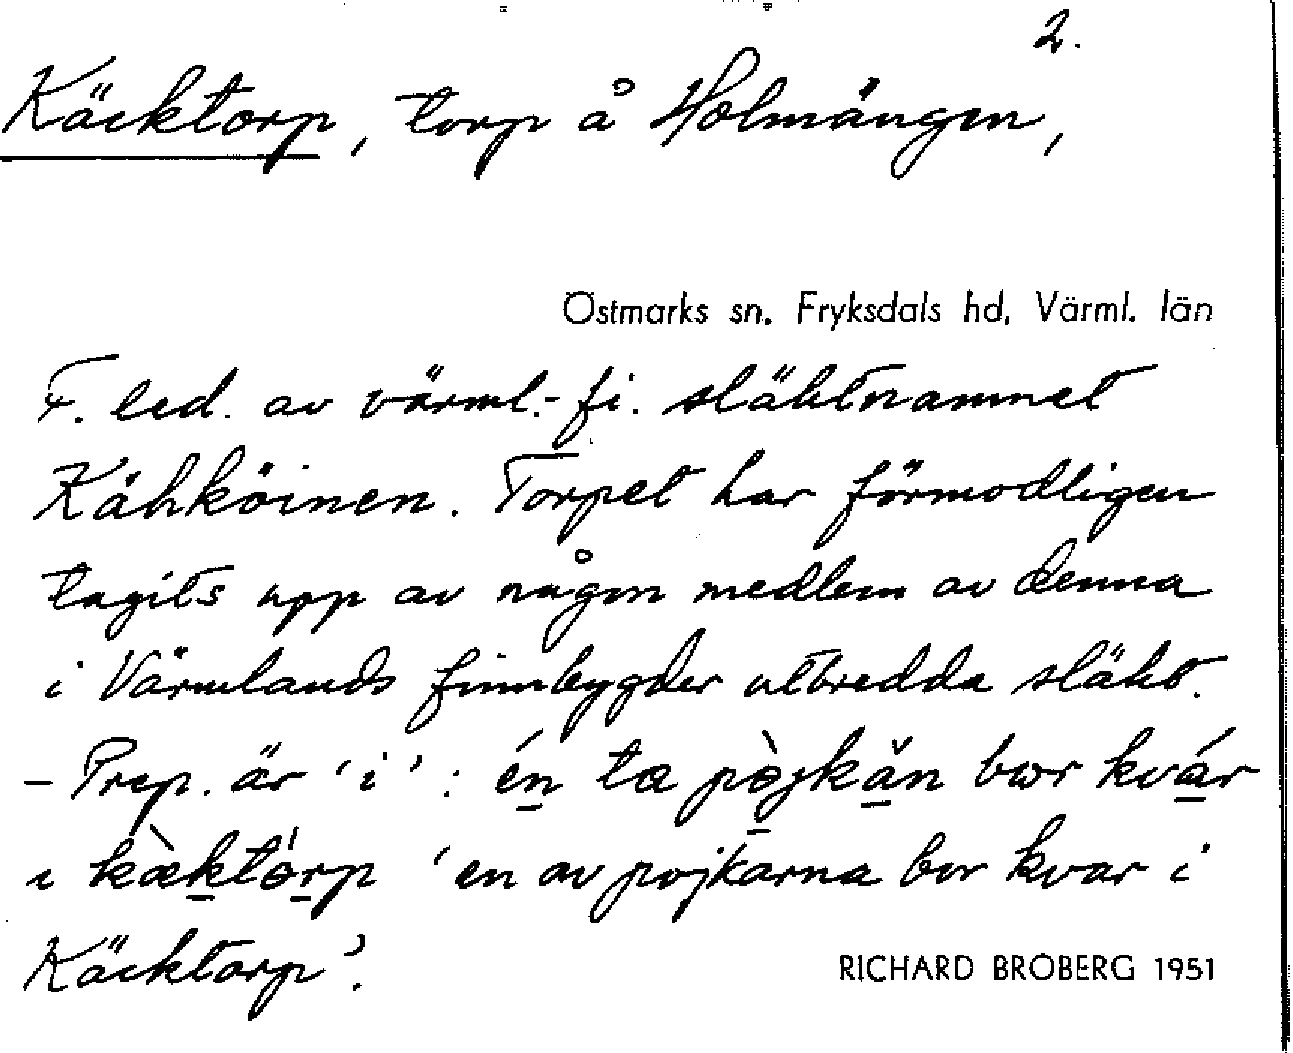 2.
Käcktorp, torp å Holmängen,
Östmarks sn. Fryksdals hd, Värml. län
F. led. av värml.-fi. släktnamnet
Kähköinen. Torpet har förmodligen
tagits upp av någon medlem av denna
i Värmlands finnbygder utbredda släkt.
- Prep. är 'i' : én tæ pòjkän bor kvár
ı kæ̀którp 'en av pojkarna bor kvar i
Käcktorp'.
RICHARD BROBERG 1951